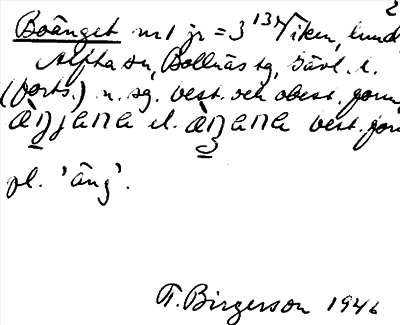 2
Boänget nr 1 jr = 3 13 Viken, lund
Alfta sn, Bollnäs tg, Gävl. l.
(forts.) n. sg. best. och obest. form
el. best. form
pl. 'äng'.
T. Birgerson 1946